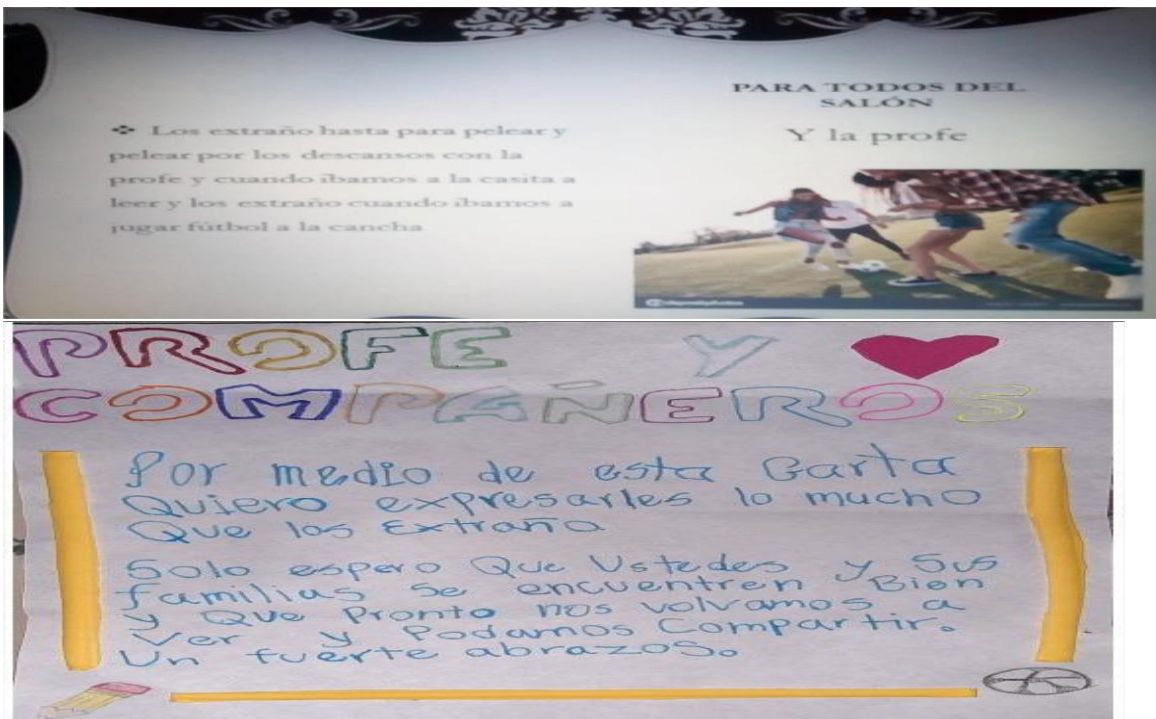 ❖ Los extraño hasta para pelear y
pelear por los descansos con la
profe y cuando íbamos a la casita a
leer y los extraño cuando íbamos a
jugar fútbol a la cancha
PARA TODOS DEL
SALÓN
Y la profe
PROFE Y
COMPAÑEROS
Por medio de esta Carta
Quiero expresarles lo mucho
Que los Extraño
Solo espero Que Ustedes y Sus
familias se encuentren Bien
y Que Pronto nos volvamos a
Ver y Podamos Compartir.
Un fuerte abrazos.